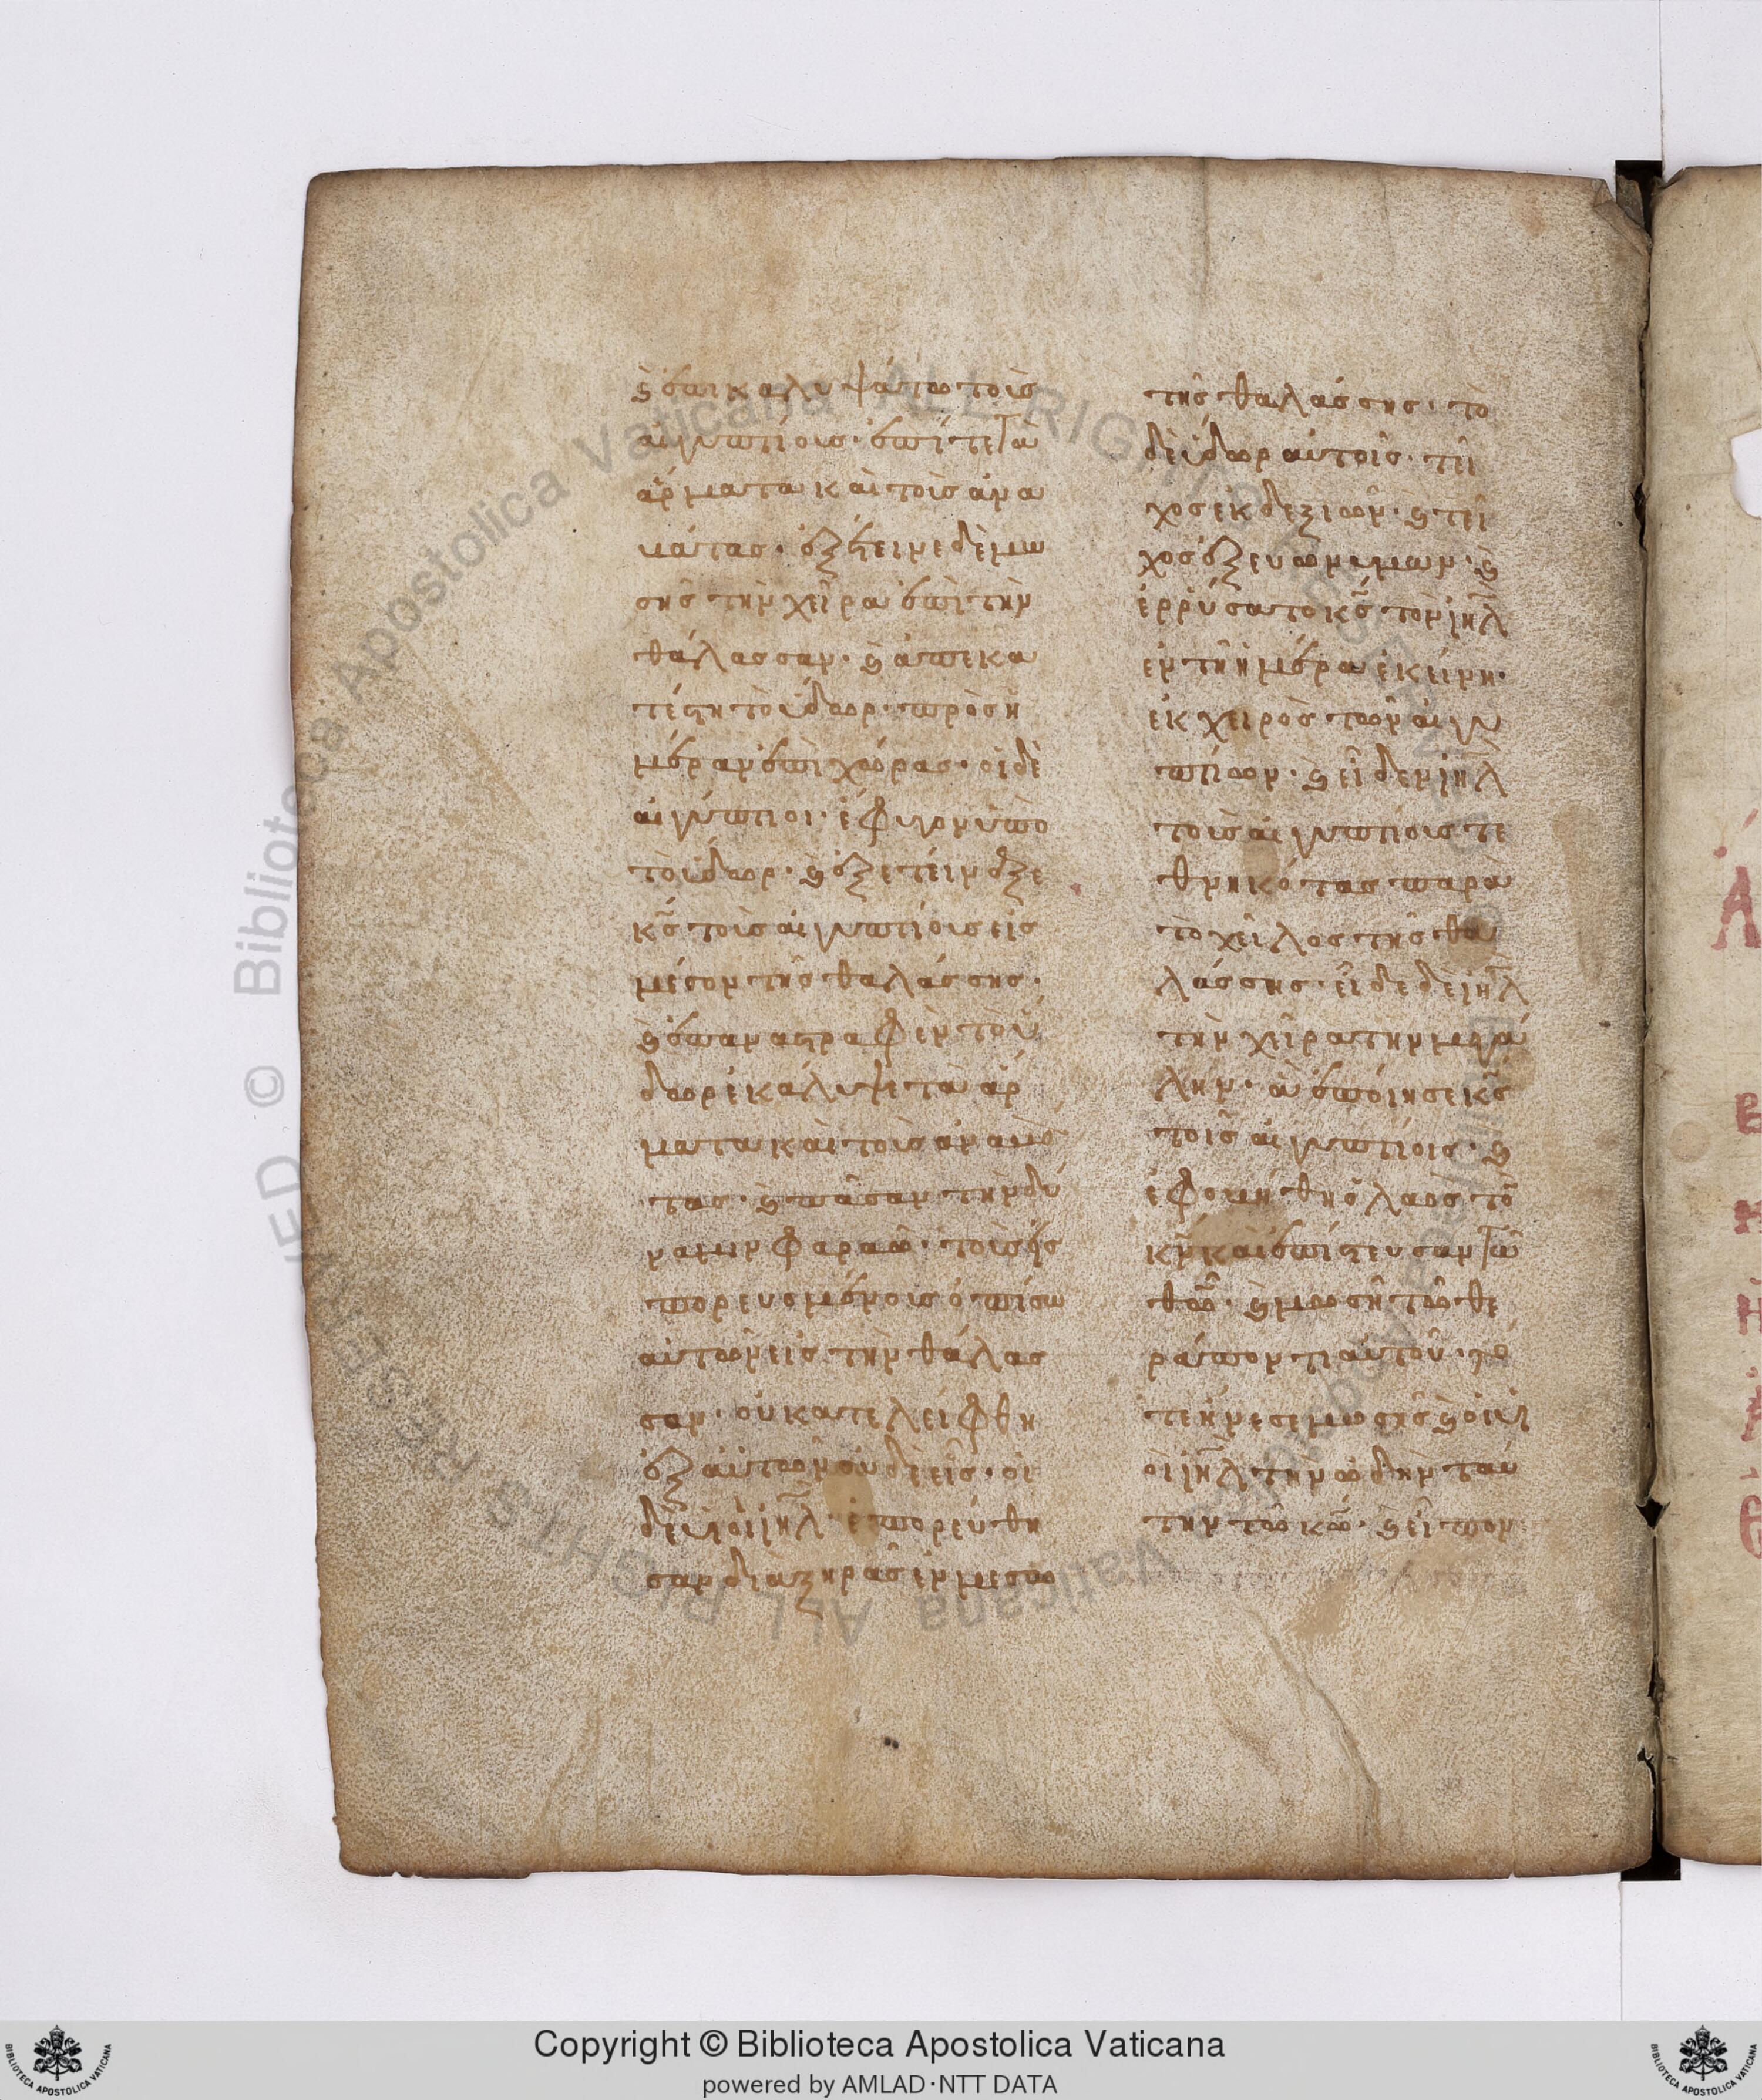 ϛ ἐπικαλυψάτω τοὺς
αἰγυπτίους· ἐπί τε τὰ
ἅρματα καὶ τοὺς ἀνα
βάτας· ἐξέτεινε δὲ μω
σῆς τὴν χεῖρα ἐπὶ τὴν
θάλασσαν· ϛ ἀπεκα
τέστη τὸ ὕδωρ· πρὸς ἡ
μέραν ἐπὶ χώρας· οἱ δὲ
αἰγύπτιοι· ἔφυγον ὑπὸ
τὸ ὕδωρ· ϛ ἐξετείναξε
κς̄ τοὺς αἰγυπτίους εἰς
μέσον τῆς θαλάσσης·
ϛ ἐπαναστραφὲν τὸ ὕ
δωρ ἐκάλυψε τὰ ἅρ
ματα καὶ τοὺς ἀναβά
τας· ϛ πᾶσαν τὴν δύ
ναμιν φαραώ· τοὺς εἰσ
πορευομένους ὀπίσω
αὐτῶν εἰς τὴν θάλασ
σαν· οὐ κατελείφθη
ἐξ αὐτῶν οὐδὲ εἷς· οἱ
δὲ υἱοὶ ιηλ̄· ἐπορεύθη
σαν διὰ ξηρᾶς ἐν μέσω
τῆς θαλάσσης· τὸ
δὲ ὕδωρ αὐτοῖς· τεῖ
χος ἐκ δεξιῶν· ϛ τεῖ
χος ἐξ εὐωνύμων· ϛ
ἐρρύσατο κς̄ τὸν ιηλ̄
ἐν τῆ ἡμέρα ἐκείνη·
ἐκ χειρὸς τῶν αἰγυ
πτίων· ϛ εἶδεν ιηλ̄
τοὺς αἰγυπτίους τε
θνηκότας παρὰ
τὸ χεῖλος τῆς θα
λάσσης· εἶδε δὲ ιηλ̄
τὴν χεῖρα τὴν μεγά
λην· ἃ ἐποίησε κς̄
τοῖς αἰγυπτίοις· ϛ
ἐφοβήθη ὁ λαὸς τὸν
κν̄ καὶ ἐπίστευσαν τῶ
θῶ· ϛ μωσῆ τῶ θε
ράποντι αὐτοῦ· τό
τε ἦνεσε μωσῆς ϛ οἱ υἱ
οὶ ιηλ̄ τὴν ὠδὴν ταύ
την τῶ κῶ· ϛ εἶπον·
Copyright © Biblioteca Apostolica Vaticana
powered by AMLAD·NTT DATA